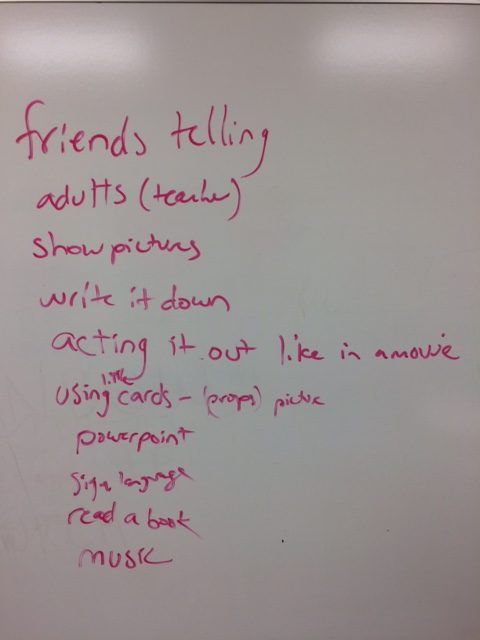 friends telling
adults (teacher)
show pictures
write it down
acting it out like in a movie
using little cards - (props) picture
powerpoint
sign language
read a book
music